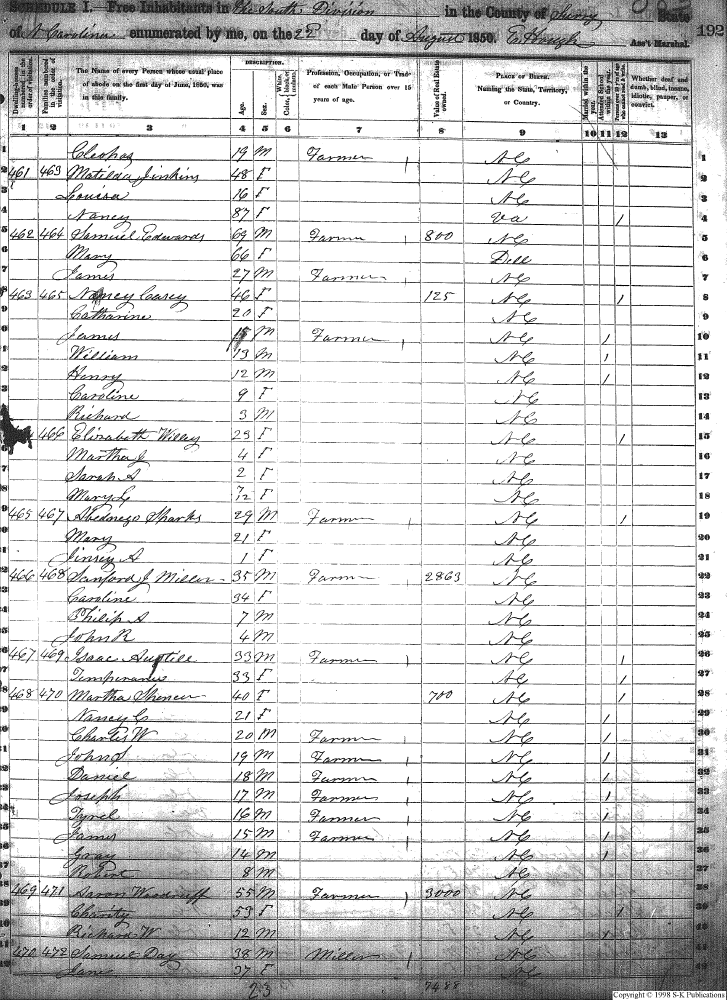 SCHEDULE I.—Free Inhabitants in the South Division in the County of Surry State
of N Carolina enumerated by me, on the 22d day of August 1850. E. Hough Ass't Marshal. 192
Dwelling-houses numbered in the order of visitation. Families numbered in the order of visitation. The Name of every Person whose usual place of abode on the first day of June, 1850, was in this family. DESCRIPTION. Age. Sex. White, black, or mulatto. Color, Profession, Occupation, or Trade of each Male Person over 15 years of age. Value of Real Estate owned. PLACE OF BIRTH. Naming the State, Territory, or Country. Married within the year. Attended School within the year. Whether deaf and dumb, blind, insane, idiotic, pauper, or convict.
1 2 3 4 5 6 7 8 9 10 11 12 13
Cleophas 19 M Farmer NC 1
461 463 Matilda Jinkins 48 F NC 2
Louisa 16 F NC 3
Nancy 87 F Va / 4
462 464 Samuel Edwards 69 M Farmer 800 NC 5
Mary 66 F Dell 6
James 27 M Farmer NC 7
463 465 Nancy Casey 46 F 125 NC / 8
Catharine 20 F NC 9
James 15 M Farmer NC / 10
William 13 M NC / 11
Henry 12 M NC / 12
Caroline 9 F NC 13
Richard 3 M NC 14
466 Elizabeth Willey 23 F NC / 15
Martha J 4 F NC 16
Sarah A 2 F NC 17
Mary L 7/12 F NC 18
465 467 Abednego Sparks 29 M Farmer NC / 19
Mary 21 F NC 20
Jinsey A 1 F NC 21
466 468 Sanford J Miller 35 M Farmer 2863 NC 22
Caroline 34 F NC 23
Philip A 7 M NC 24
John R 4 M NC 25
467 469 Isaac 33 M Farmer NC / 26
Temperance 33 F NC / 27
468 470 Martha Spencer 40 F 700 NC / 28
Nancy C 21 F NC / 29
Charles W 20 M Farmer NC / 30
John S 19 M Farmer NC / 31
Daniel 18 M Farmer NC / 32
Joseph 17 M Farmer NC / 33
Tyrel 16 M Farmer NC / 34
James 15 M Farmer NC / 35
Gray 14 M NC / 36
Robert 8 M NC 37
469 471 Aaron Woodruff 55 M Farmer 3000 NC 38
Charity 53 F NC / 39
Richard W 12 M NC / 40
470 472 Samuel Day 38 M Miller NC 41
Jane 37 F NC 42
23 7488
Copyright © 1998 S-K Publications